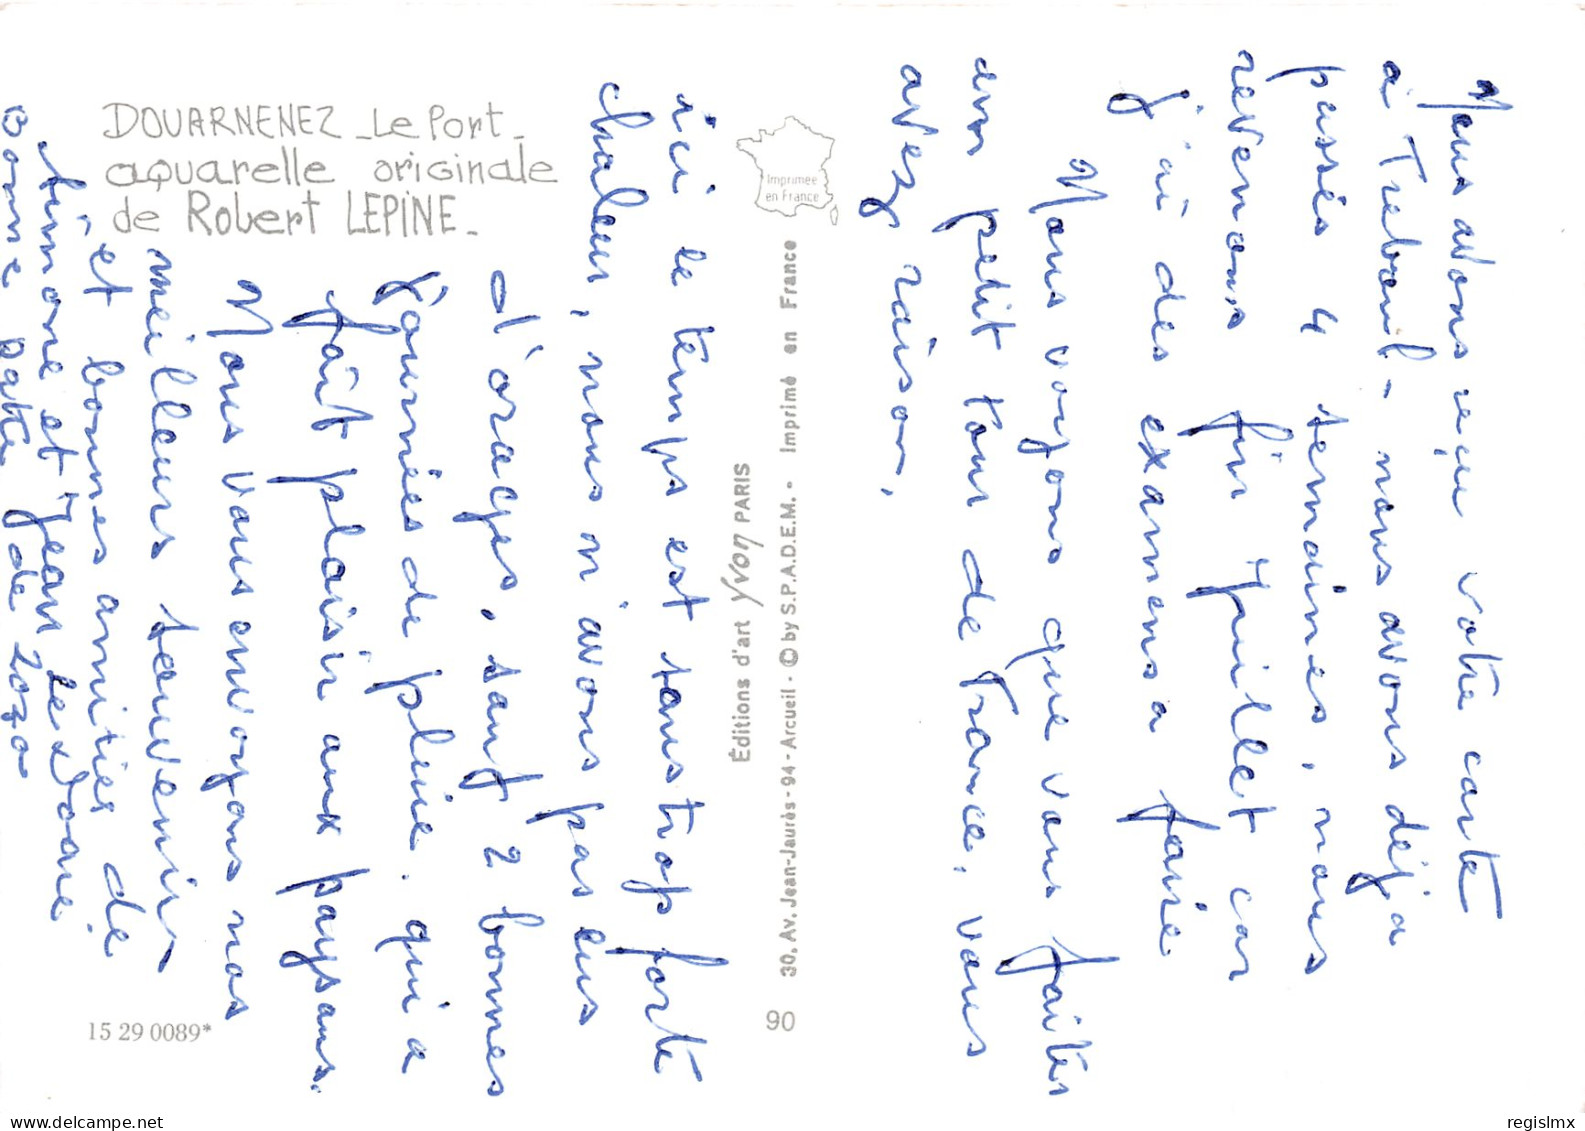 DOUARNENEZ _ Le Port _
aquarelle originale
de Robert LEPINE _
Imprimée
en France
Éditions d'art Yvon PARIS
30, Av. Jean-Jaurès - 94 - Arcueil - © by S.P.A.D.E.M. - Imprimé en France
90
15 29 0089*
Nous avons reçu votre carte
à Treboul - nous avons déjà
passés 4 semaines, nous
revenons fin Juillet car
j'ai des examens a faire
Nous voyons que vous faites
un petit tour de France, vous
avez raison,
ici le temps est sans trop forte
chaleur, nous n'avons pas eus
d'orages, sauf 2 bonnes
journées de pluie. qui a
fait plaisir aux paysans.
Nous vous envoyons nos
meilleurs souvenirs
et bonnes amitiés de
Simone et Jean
Bonne patte de Zozo
regislmx